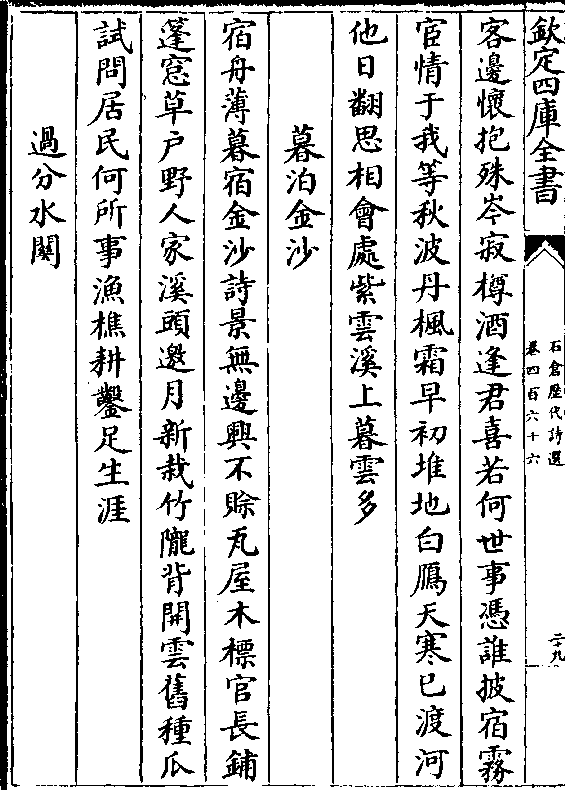 欽定四庫全書
石倉歷代詩選
卷四百六十六
二十九
客邊懷抱殊岑寂樽酒逢君喜若何世事憑誰披宿霧
宦情于我等秋波丹楓霜早初堆地白鴈天寒已渡河
他日翻思相會處紫雲溪上暮雲多
暮泊金沙
宿舟薄暮宿金沙詩景無邊興不賒瓦屋木標官長鋪
蓬窓草戶野人家溪頭邀月新栽竹隴背開雲舊種瓜
試問居民何所事漁樵耕鑿足生涯
過分水關